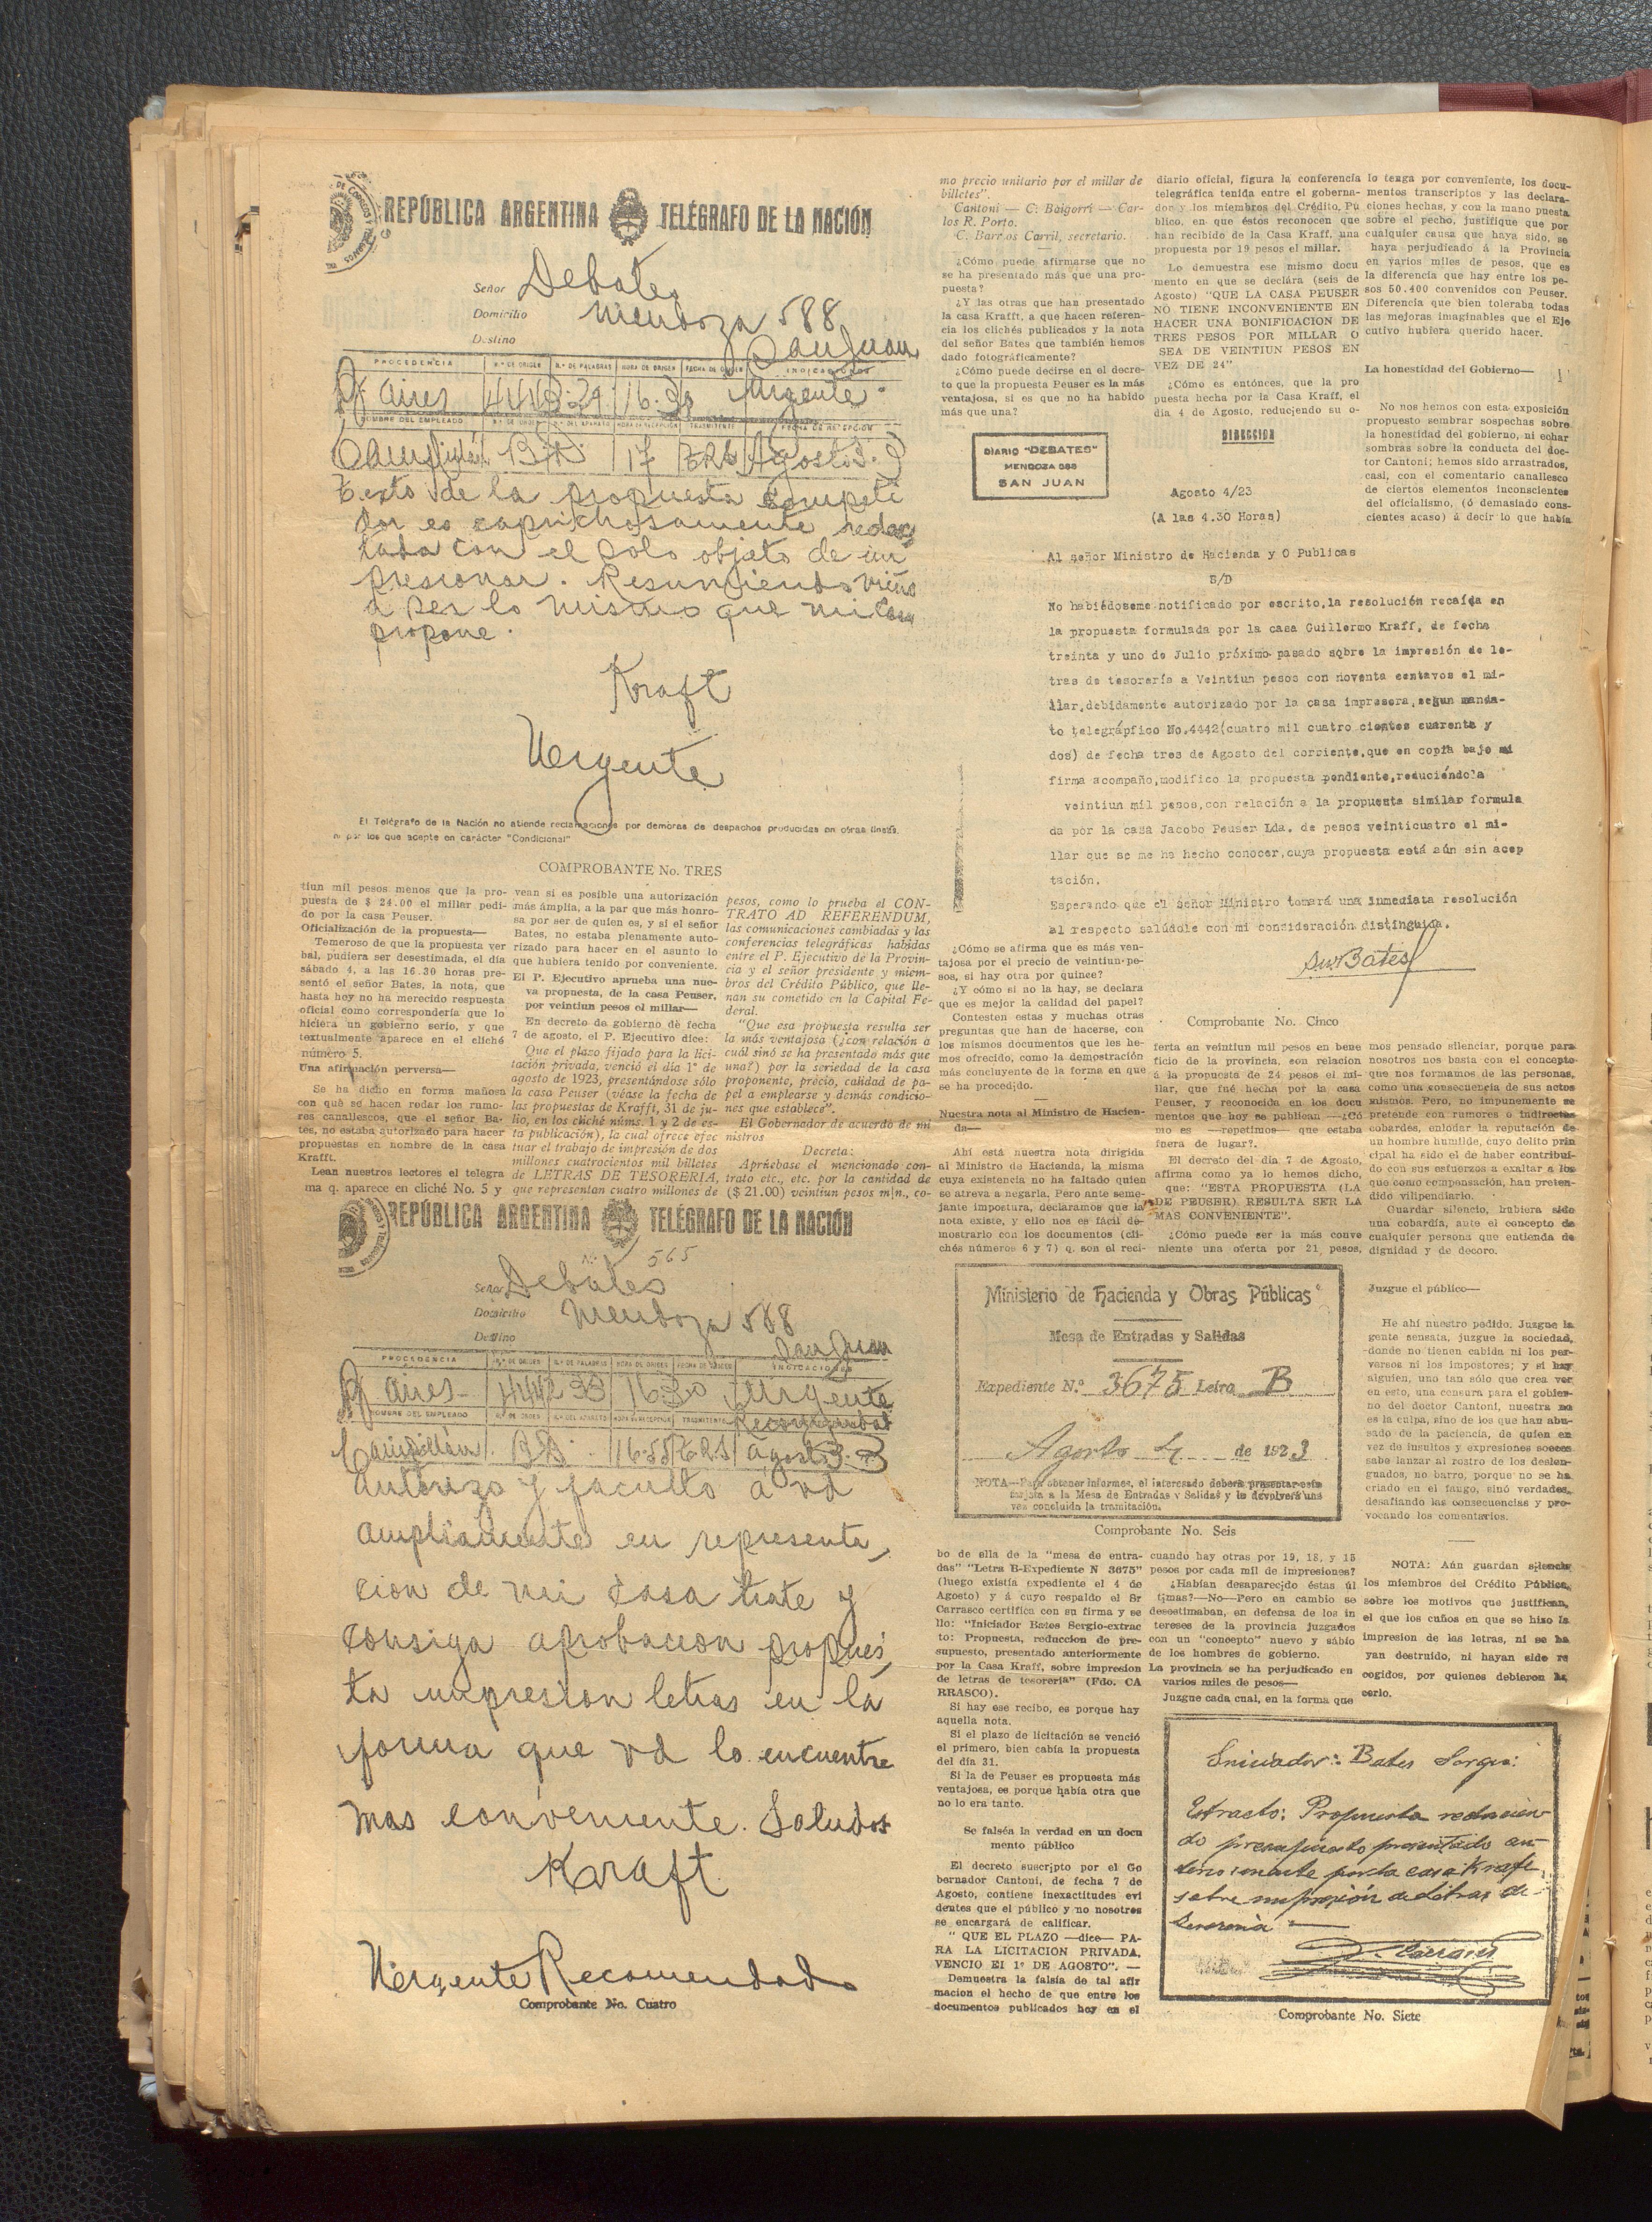 REPÚBLICA ARGENTINA TELÉGRAFO DE LA NACIÓN
Señor Debates
Domicilio Mendoza 588
Destino San Juan
PROCEDENCIA N.º DE ORIGEN N.º DE PALABRAS HORA DE ORIGEN FECHA DE ORIGEN INDICACIONES
Bs Aires 4443 29 16.30 Urgente
NOMBRE DEL EMPLEADO N.º DE ORDEN N.º DEL APARATO HORA DE RECEPCIÓN TRASMITENTE FECHA DE RECEPCIÓN
17 Agosto 3
texto de la propuesta competi
dor es caprichosamente redac
tada con el solo objeto de im
presionar. Resumiendo viene
a ser lo mismo que mi casa
propone.
Kraft
Urgente
El Telégrafo de la Nación no atiende reclamaciones por demoras de despachos producidas en otras líneas,
ni por los que acepte en carácter "Condicional"
COMPROBANTE No. TRES
tiun mil pesos menos que la pro-
puesta de $ 24.00 el millar pedi-
do por la casa Peuser.
Oficialización de la propuesta—
Temeroso de que la propuesta ver
bal, pudiera ser desestimada, el día
sábado 4, a las 16.30 horas pre-
sentó el señor Bates, la nota, que
hasta hoy no ha merecido respuesta
oficial como correspondería que lo
hiciera un gobierno serio, y que
textualmente aparece en el cliché
número 5.
Una afirmación perversa—
Se ha dicho en forma mañosa
con qué se hacen rodar los rumo-
res canallescos, que el señor Ba-
tes, no estaba autorizado para hacer
propuestas en nombre de la casa
Krafft.
Lean nuestros lectores el telegra
ma q. aparece en cliché No. 5 y
vean si es posible una autorización
más ámplia, a la par que más honro-
sa por ser de quien es, y si el señor
Bates, no estaba plenamente auto-
rizado para hacer en el asunto lo
que hubiera tenido por conveniente.
El P. Ejecutivo aprueba una nue-
va propuesta, de la casa Peuser,
por veintiun pesos el millar—
En decreto de gobierno de fecha
7 de agosto, el P. Ejecutivo dice:
Que el plazo fijado para la lici-
tación privada, venció el día 1° de
agosto de 1923, presentándose sólo
la casa Peuser (véase la fecha de
las propuestas de Krafft, 31 de ju-
lio, en los cliché núms. 1 y 2 de es-
ta publicación), la cual ofrece efec
tuar el trabajo de impresión de dos
millones cuatrocientos mil billetes
de LETRAS DE TESORERIA,
que representan cuatro millones de
pesos, como lo prueba el CON-
TRATO AD REFERENDUM,
las comunicaciones cambiadas y las
conferencias telegráficas habidas
entre el P. Ejecutivo de la Provin-
cia y el señor presidente y miem-
bros del Crédito Público, que lle-
nan su cometido en la Capital Fe-
deral.
"Que esa propuesta resulta ser
la más ventajosa (¿con relación a
cuál sinó se ha presentado más que
una?) por la seriedad de la casa
proponente, precio, calidad de pa-
pel a emplearse y demás condicio-
nes que establece".
El Gobernador de acuerdo de mi
nistros
Decreta:
Apruébase el mencionado con-
trato etc., etc. por la cantidad de
($ 21.00) veintiun pesos m|n., co-
REPÚBLICA ARGENTINA TELÉGRAFO DE LA NACIÓN
N.º 565
Señor Debates
Domicilio Mendoza 588
Destino San Juan
PROCEDENCIA N.º DE ORIGEN N.º DE PALABRAS HORA DE ORIGEN FECHA DE ORIGEN INDICACIONES
Bs Aires 4442 33 16.30 Urgente
Recomendado
NOMBRE DEL EMPLEADO N.º DE ORDEN N.º DEL APARATO HORA DE RECEPCIÓN TRASMITENTE
16.55 agosto 3
Autorizo y faculto a vd
ampliamente en representa
cion de mi casa trate y
consiga aprobacion propues
ta impresion letras en la
forma que vd lo encuentre
mas conveniente. Saludos
Kraft
Urgente Recomendado
Comprobante No. Cuatro
mo precio unitario por el millar de
billetes".
Cantoni — C. Baigorri — Car-
los R. Porto.
C. Barrios Carril, secretario.
¿Cómo puede afirmarse que no
se ha presentado más que una pro-
puesta?
¿Y las otras que han presentado
la casa Krafft, a que hacen referen-
cia los clichés publicados y la nota
del señor Bates que también hemos
dado fotográficamente?
¿Cómo puede decirse en el decre-
to que la propuesta Peuser es la más
ventajosa, si es que no ha habido
más que una?
diario oficial, figura la conferencia
telegráfica tenida entre el goberna-
dor y los miembros del Crédito. Pú
blico, en que éstos reconocen que
han recibido de la Casa Kraff, una
propuesta por 19 pesos el millar.
Lo demuestra ese mismo docu
mento en que se declara (seis de
Agosto) "QUE LA CASA PEUSER
NO TIENE INCONVENIENTE EN
HACER UNA BONIFICACION DE
TRES PESOS POR MILLAR O
SEA DE VEINTIUN PESOS EN
VEZ DE 24"
¿Cómo es entónces, que la pro
puesta hecha por la Casa Kraff, el
dia 4 de Agosto, reduciendo su o-
lo tenga por conveniente, los docu-
mentos transcriptos y las declara-
ciones hechas, y con la mano puesta
sobre el pecho, justifique que por
cualquier causa que haya sido, se
haya perjudicado á la Provincia
en varios miles de pesos, que es
la diferencia que hay entre los pe-
sos 50.400 convenidos con Peuser.
Diferencia que bien toleraba todas
las mejoras imaginables que el Eje
cutivo hubiera querido hacer.
La honestidad del Gobierno—
No nos hemos con esta exposición
propuesto sembrar sospechas sobre
la honestidad del gobierno, ni echar
sombras sobre la conducta del doc-
tor Cantoni; hemos sido arrastrados,
casi, con el comentario canallesco
de ciertos elementos inconscientes
del oficialismo, (ó demasiado cons-
cientes acaso) á decir lo que había
DIARIO "DEBATES"
MENDOZA 588
SAN JUAN
DIRECCION
Agosto 4/23
(A las 4.30 Horas)
Al señor Ministro de Hacienda y O Publicas
S/D
No habiédoseme notificado por escrito,la resolución recaída en
la propuesta formulada por la casa Guillermo Kraff, de fecha
treinta y uno de Julio próximo pasado sobre la impresión de le-
tras de tesorería a Veintiun pesos con noventa centavos el mi-
llar,debidamente autorizado por la casa impresora,segun manda-
to telegrápfico No.4442(cuatro mil cuatro cientos cuarenta y
dos) de fecha tres de Agosto del corriente,que en copia bajo mi
firma acompaño,modifico la propuesta pendiente,reduciéndola
veintiun mil pesos,con relación a la propuesta similar formula
da por la casa Jacobo Peuser Lda. de pesos veinticuatro el mi-
llar que se me ha hecho conocer,cuya propuesta está aún sin acep
tación.
Esperando que el señor Ministro tomará una inmediata resolución
al respecto salúdole con mi consideración distinguida.
Bates
Comprobante No. Cinco
¿Cómo se afirma que es más ven-
tajosa por el precio de veintiun pe-
sos, si hay otra por quince?
¿Y cómo si no la hay, se declara
que es mejor la calidad del papel?
Contesten estas y muchas otras
preguntas que han de hacerse, con
los mismos documentos que les he-
mos ofrecido, como la demostración
más concluyente de la forma en que
se ha procedido.
Nuestra nota al Ministro de Hacien-
da—
Ahí está nuestra nota dirigida
al Ministro de Hacienda, la misma
cuya existencia no ha faltado quien
se atreva a negarla. Pero ante seme-
jante impostura, declaramos que la
nota existe, y ello nos es fácil de-
mostrarlo con los documentos (cli-
chés números 6 y 7) q. son el reci-
ferta en veintiun mil pesos en bene
ficio de la provincia, con relacion
á la propuesta de 24 pesos el mi-
llar, que fué hecha por la casa
Peuser, y reconocida en los docu
mentos que hoy se publican —¿Có
mo es —repetimos— que estaba
fuera de lugar?.
El decreto del dia 7 de Agosto,
afirma como ya lo hemos dicho,
que: "ESTA PROPUESTA (LA
DE PEUSER) RESULTA SER LA
MAS CONVENIENTE".
¿Cómo puede ser la más conve
niente una oferta por 21 pesos,
mos pensado silenciar, porque para
nosotros nos basta con el concepto
que nos formamos de las personas,
como una consecuencia de sus actos
mismos. Pero, no impunemente se
pretende con rumores o indirectas
cobardes, enlodar la reputación de
un hombre humilde, cuyo delito prin
cipal ha sido el de haber contribuí-
do con sus esfuerzos a exaltar a los
que como compensación, han preten-
dido vilipendiarlo.
Guardar silencio, hubiera sido
una cobardía, ante el concepto de
cualquier persona que entienda de
dignidad y de decoro.
Juzgue el público—
He ahí nuestro pedido. Juzgue la
gente sensata, juzgue la sociedad,
donde no tienen cabida ni los per-
versos ni los impostores; y si hay
alguien, uno tan sólo que crea ver
en esto, una censura para el gobier-
no del doctor Cantoni, nuestra no
es la culpa, sino de los que han abu-
sado de la paciencia, de quien en
vez de insultos y expresiones soeces
sabe lanzar al rostro de los deslen-
guados, no barro, porque no se ha
criado en el fango, sinó verdades,
desafiando las consecuencias y pro-
vocando los comentarios.
Ministerio de Hacienda y Obras Públicas
Mesa de Entradas y Salidas
Expediente N.º 3675 Letra B
Agosto 4 de 1923
NOTA—Para obtener informes, el interesado deberá presentar esta
tarjeta a la Mesa de Entradas y Salidas y la devolverá una
vez concluida la tramitación.
Comprobante No. Seis
bo de ella de la "mesa de entra-
das" "Letra B-Expediente N 3675"
(luego existía expediente el 4 de
Agosto) y á cuyo respaldo el Sr
Carrasco certifica con su firma y se
llo: "Iniciador Bates Sergio-extrac
to: Propuesta, reduccion de pre-
supuesto, presentado anteriormente
por la Casa Kraff, sobre impresion
de letras de tesorería" (Fdo. CA
RRASCO).
Si hay ese recibo, es porque hay
aquella nota.
Si el plazo de licitación se venció
el primero, bien cabía la propuesta
del día 31.
Si la de Peuser es propuesta más
ventajosa, es porque había otra que
no lo era tanto.
Se falséa la verdad en un docu
mento público
El decreto suscripto por el Go
bernador Cantoni, de fecha 7 de
Agosto, contiene inexactitudes evi
dentes que el público y no nosotros
se encargará de calificar.
" QUE EL PLAZO —dice— PA-
RA LA LICITACION PRIVADA,
VENCIO El 1° DE AGOSTO". —
Demuestra la falsía de tal afir
macion el hecho de que entre los
documentos publicados hoy en el
cuando hay otras por 19, 18, y 15
pesos por cada mil de impresiones?
¿Habían desaparecido éstas úl
timas?—No—Pero en cambio se
desestimaban, en defensa de los in
tereses de la provincia juzgados
con un "concepto" nuevo y sábio
de los hombres de gobierno.
La provincia se ha perjudicado en
varios miles de pesos—
Juzgue cada cual, en la forma que
NOTA: Aún guardan silencio
los miembros del Crédito Público,
sobre los motivos que justifican,
el que los cuños en que se hizo la
impresion de las letras, ni se ha
yan destruído, ni hayan sido re
cogidos, por quienes debieron ha
cerlo.
Iniciador: Bates Sergio:
Extracto: Propuesta reducien-
do presupuesto presentado an-
teriormente por la casa Kraft,
sobre impresión de letras de
tesorería —
Comprobante No. Siete